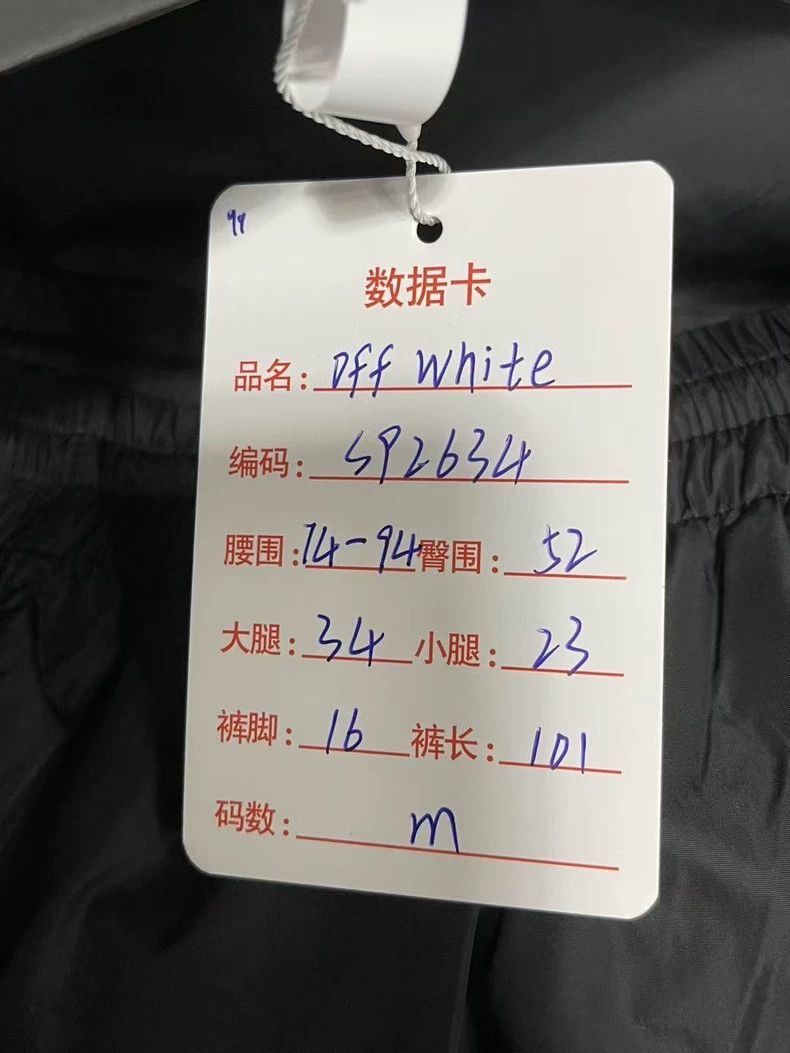 数据卡
品名: Off White
编码: SP2634
腰围: 74-94 臀围: 52
大腿: 34 小腿: 23
裤脚: 16 裤长: 101
码数: m